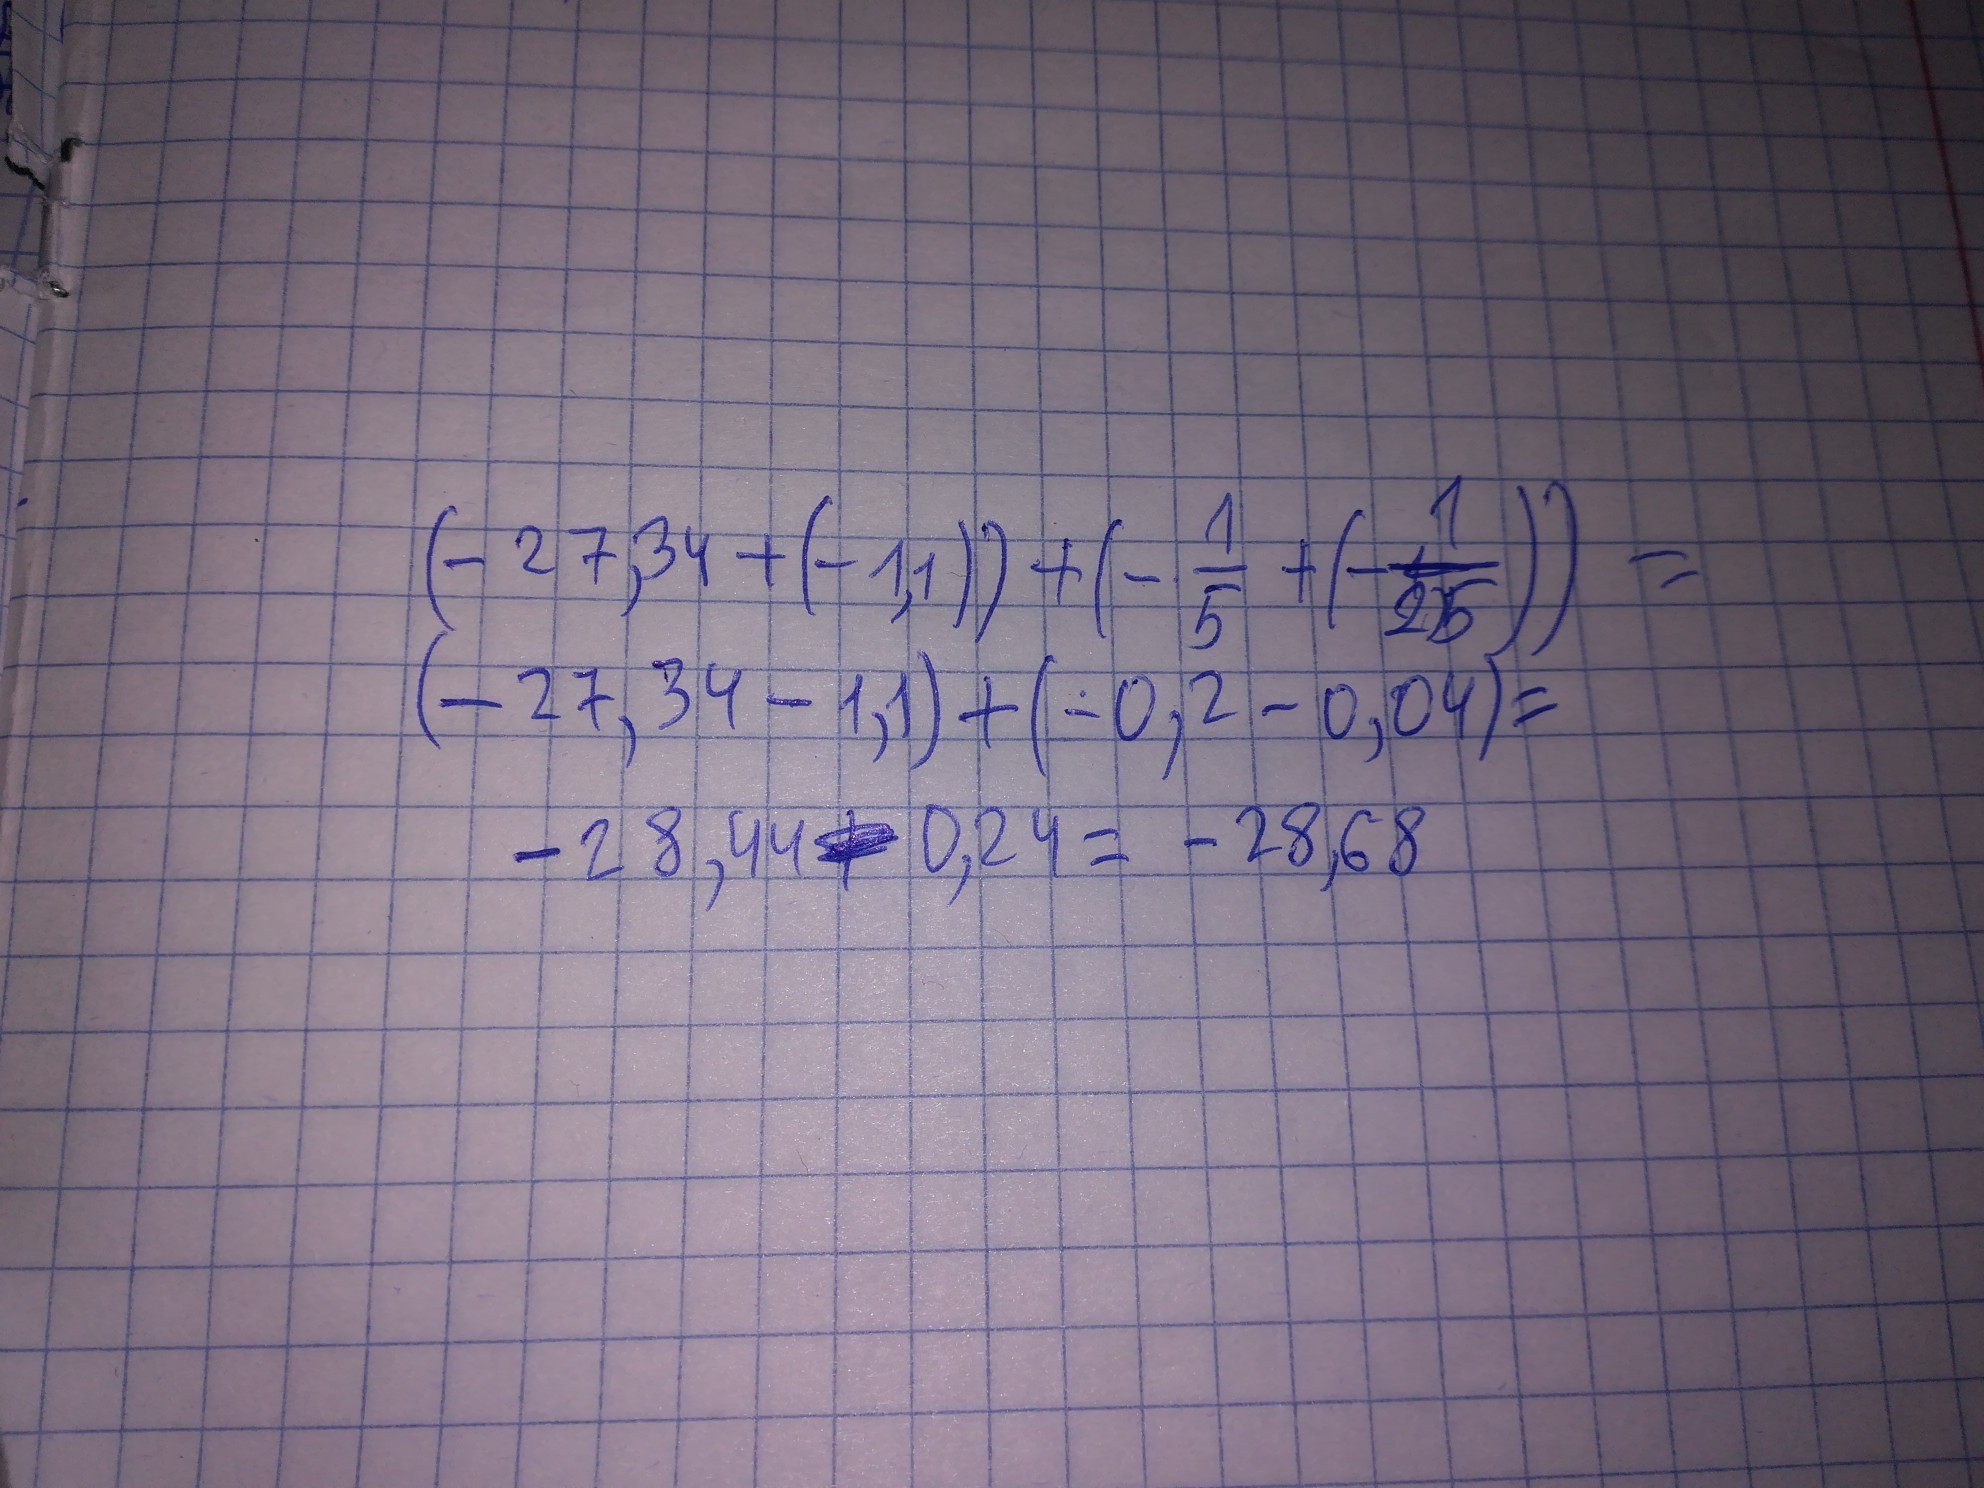 (-27,34+(-1,1))+(-1/5+(-1/25))=
(-27,34-1,1)+(-0,2-0,04)=
-28,44-0,24=-28,68